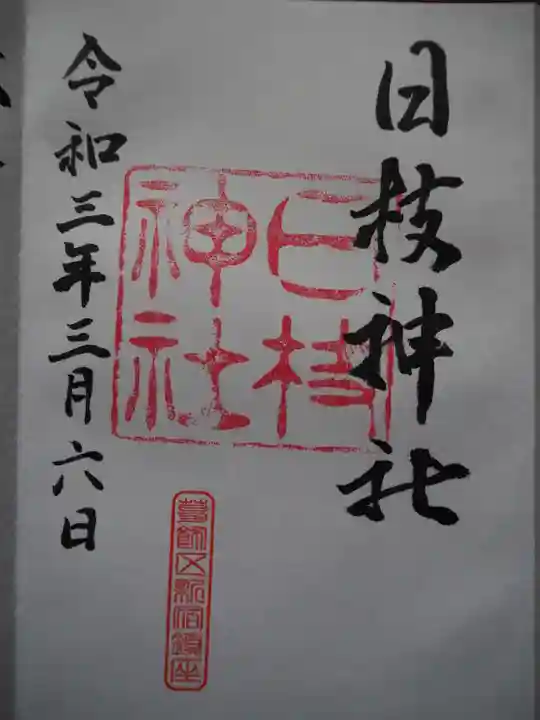 日枝神社
日枝
神社
令和三年三月六日
葛飾区新宿鎮座